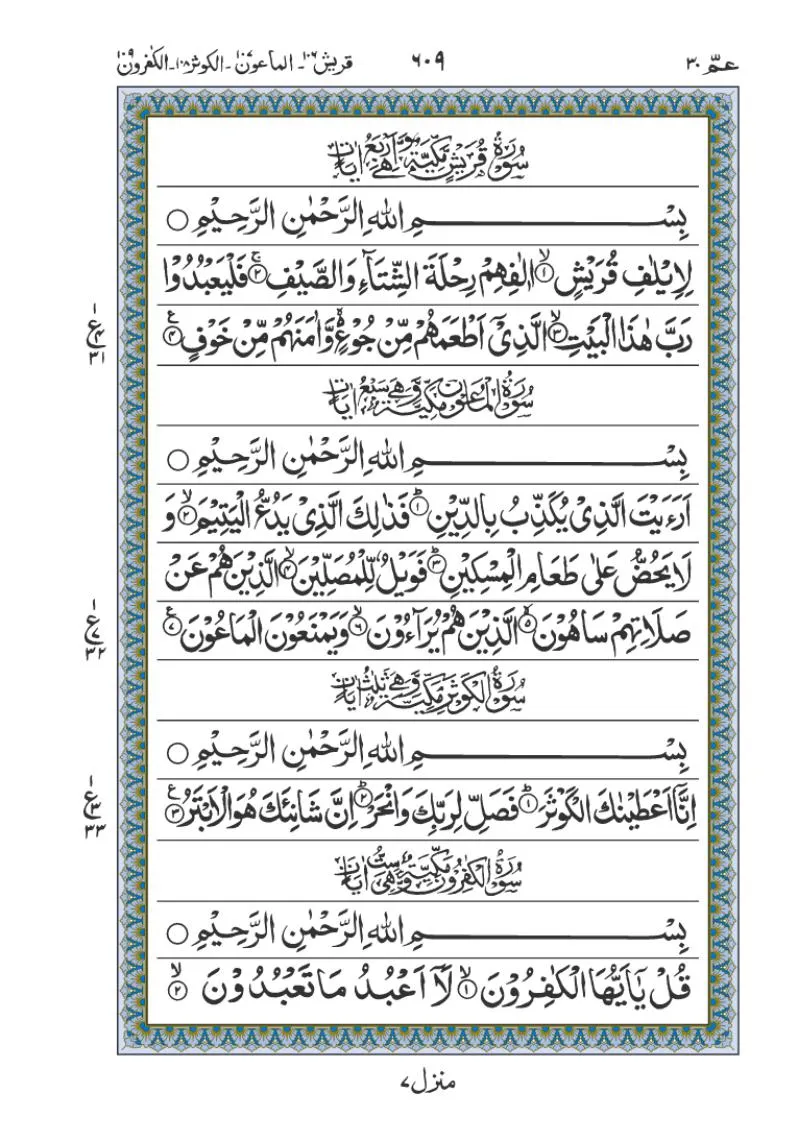 عمّ ٣٠ ٦٠٩ قريش ١٠٦۔ الماعون ١٠٧۔ الكوثر ١٠٨۔ الكٰفرون ١٠٩
سُوْرَةُ قُرَيْشٍ مَّكِّيَّةٌ وَّهِيَ اَرْبَعُ اٰيَاتٍ
بِسْمِ اللّٰهِ الرَّحْمٰنِ الرَّحِيْمِ ○
لِاِيْلٰفِ قُرَيْشٍ ۙ﴿١﴾ اٖلٰفِهِمْ رِحْلَةَ الشِّتَآءِ وَالصَّيْفِ ۚ﴿٢﴾ فَلْيَعْبُدُوْا
رَبَّ هٰذَا الْبَيْتِ ۙ﴿٣﴾ الَّذِيْۤ اَطْعَمَهُمْ مِّنْ جُوْعٍ ۙ۬ وَّاٰمَنَهُمْ مِّنْ خَوْفٍ ﴿٤﴾
ع ٤ ٣١
سُوْرَةُ الْمَاعُوْنِ مَكِّيَّةٌ وَّهِيَ سَبْعُ اٰيَاتٍ
بِسْمِ اللّٰهِ الرَّحْمٰنِ الرَّحِيْمِ ○
اَرَءَيْتَ الَّذِيْ يُكَذِّبُ بِالدِّيْنِ ؕ﴿١﴾ فَذٰلِكَ الَّذِيْ يَدُعُّ الْيَتِيْمَ ۙ﴿٢﴾ وَ
لَا يَحُضُّ عَلٰى طَعَامِ الْمِسْكِيْنِ ؕ﴿٣﴾ فَوَيْلٌ لِّلْمُصَلِّيْنَ ۙ﴿٤﴾ الَّذِيْنَ هُمْ عَنْ
صَلَاتِهِمْ سَاهُوْنَ ۙ﴿٥﴾ الَّذِيْنَ هُمْ يُرَآءُوْنَ ۙ﴿٦﴾ وَيَمْنَعُوْنَ الْمَاعُوْنَ ﴿٧﴾
ع ٧ ٣٢
سُوْرَةُ الْكَوْثَرِ مَكِّيَّةٌ وَّهِيَ ثَلٰثُ اٰيَاتٍ
بِسْمِ اللّٰهِ الرَّحْمٰنِ الرَّحِيْمِ ○
اِنَّاۤ اَعْطَيْنٰكَ الْكَوْثَرَ ؕ﴿١﴾ فَصَلِّ لِرَبِّكَ وَانْحَرْ ؕ﴿٢﴾ اِنَّ شَانِئَكَ هُوَ الْاَبْتَرُ ﴿٣﴾
ع ٣ ٣٣
سُوْرَةُ الْكٰفِرُوْنَ مَكِّيَّةٌ وَّهِيَ سِتُّ اٰيَاتٍ
بِسْمِ اللّٰهِ الرَّحْمٰنِ الرَّحِيْمِ ○
قُلْ يٰۤاَيُّهَا الْكٰفِرُوْنَ ۙ﴿١﴾ لَاۤ اَعْبُدُ مَا تَعْبُدُوْنَ ۙ﴿٢﴾
منزل ٧